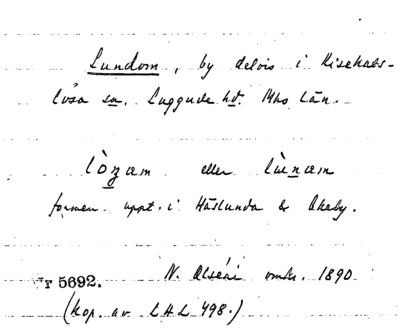 Lundom, by delvis i Kisekabs-
lösa sn. Luggude hd. Mhs Län.
lòn̲am eller lùn̲am
formen uppt. i Häslunda & Ekeby.
Nr 5692. N. Olséni omkr. 1890
(Kop. av LHL 498.)